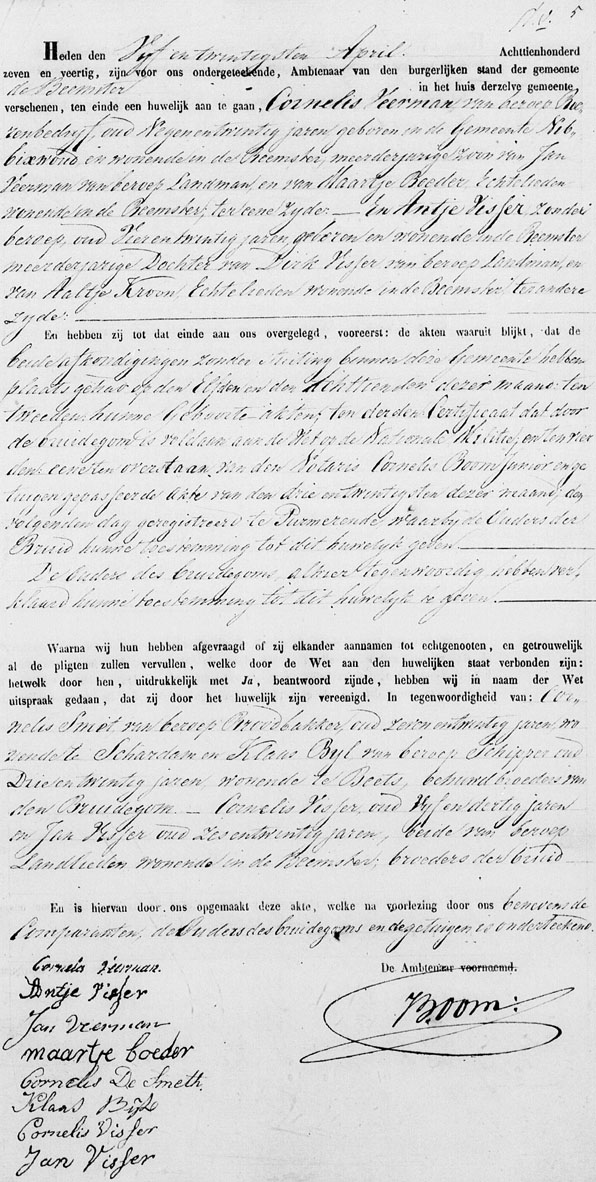 No. 5
Heden den Vyf en twintigsten April. Achttienhonderd
zeven en veertig, zijn voor ons ondergeteekende, Ambtenaar van den burgerlijken stand der gemeente
de Beemster in het huis derzelve gemeente
verschenen, ten einde een huwelijk aan te gaan, Cornelis Veerman van beroep Boe-
renbedryf, oud Negen en twintig jaren geboren in de Gemeente Nib-
bixwoud en wonende in de Beemster, meerderjarige zoon van Jan
Veerman van beroep Landman, en van Maartje Boeder, Echtelieden
wonende in de Beemster, ter eene zyde — En Antje Visser, zonder
beroep, oud Vier en twintig jaren, geboren en wonende in de Beemster
meerderjarige Dochter van Dirk Visser, van beroep Landman, en
van Aaltje Kroon, Echtelieden wonende in de Beemster, ter andere
zyde.
En hebben zij tot dat einde aan ons overgelegd, vooreerst: de akten waaruit blijkt, dat de
beide afkondigingen zonder stuiting binnen deze Gemeente hebben
plaats gehad op den Elfden en den Achttienden dezer maand: ten
tweeden hunne Geboorte akten; ten derden Certificaat dat door
de bruidegom is voldaan aan de Wet op de Nationale Militie, en ten vier
den: eene ten overstaan van den Notaris Cornelis Boom Junior en ge
tuigen gepasseerde Akte van den drie en twintigsten dezer maand, den
volgenden dag geregistreerd te Purmerende waarby de Ouders der
Bruid hunne toestemming tot dit huwelijk geven.
De Ouders des bruidegoms, alhier tegenwoordig, hebben ver-
klaard hunne toestemming tot dit huwelijk te geven.
Waarna wij hun hebben afgevraagd of zij elkander aannamen tot echtgenooten, en getrouwelijk
al de pligten zullen vervullen, welke door de Wet aan den huwelijken staat verbonden zijn:
hetwelk door hen, uitdrukkelijk met Ja, beantwoord zijnde, hebben wij in naam der Wet
uitspraak gedaan, dat zij door het huwelijk zijn vereenigd. In tegenwoordigheid van: Cor-
nelis Smet van beroep Broodbakker, oud zeven en twintig jaren, wo
nende te Schardam en Klaas Byl van beroep Schipper oud
Drie en twintig jaren, wonende te Beets, behuwd broeders van
den Bruidegom. — Cornelis Visser, oud Vyf en dertig jaren
en Jan Visser oud zes en twintig jaren, beide van beroep
Landlieden wonende in de Beemster; broeders der bruid
En is hiervan door ons opgemaakt deze akte, welke na voorlezing door ons benevens de
Comparanten, de Ouders des bruidegoms en de getuigen is onderteekend.
De Ambtenaar voornoemd.
Cornelis Veerman.
Antje Visser
Boom:
Jan Veerman
maartje boeder
Cornelis De Smeth
Klaas Bijl
Cornelis Visser
Jan Visser